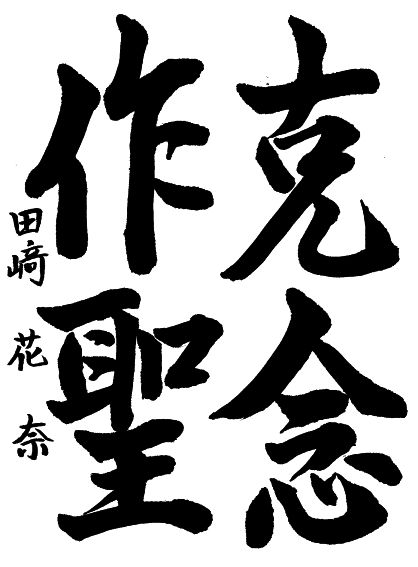 克念
作聖
田﨑花奈